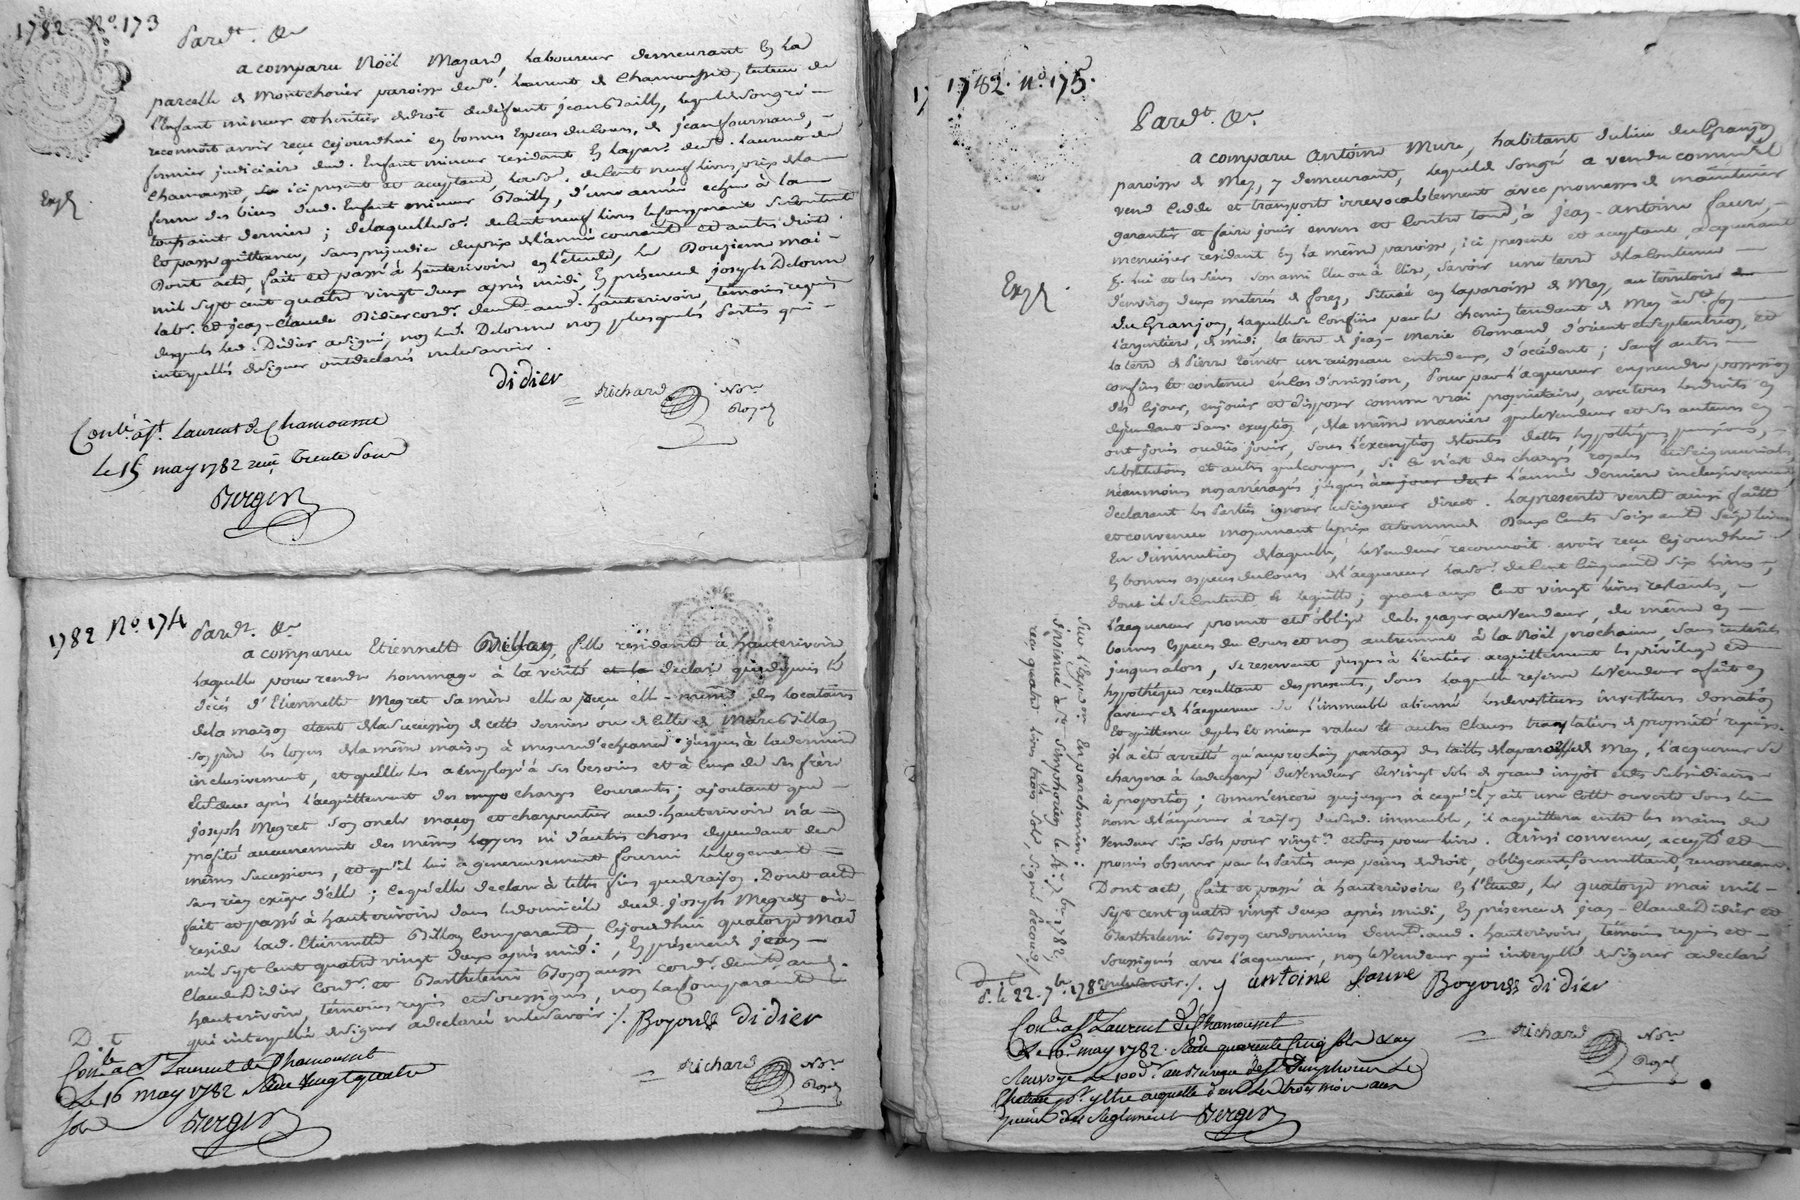 1782 No. 173
Pardt. &a
a comparu Noël Mazard, laboureur demeurant en la
parcelle de Montchorier paroisse dud. st. Laurent de Chamousset, tuteur de
l'enfant mineur et héritier de droit de défunt jean Bailly, lequel de son gré
reconnoit avoir reçu cejourdhui en bonnes especes du cours, de jean fournand,
fermier judiciaire dud. Enfant mineur residant en la par. de st. Laurent de
Chamousset, ici present et acceptant, la so. de Cent neuf livres, prix de la
Exp.
ferme des biens dud. Enfant mineur Bailly, d'une année echue à la
toussaint dernier; de laquelle so. de Cent neuf livres le Comparant se contente
et passe quittance, sans prejudice du prix de l'année courante et autres droits.
Dont acte, fait et passé à hauterivoire en l'étude, le Douzieme mai
mil sept cent quatre vingt deux après midi, En présence de joseph Delorme
labr. et jean-Claude Didier cordr. demts. aud. hauterivoire, témoins requis
desquels led. Didier a signé, non led. Delorme non plus que les Parties qui
interpellés de signer ont déclaré ne le savoir.
didier
Richard Nore
Royal
Conlé. à st. Laurent de Chamousset
Le 15 may 1782 reçu trente sous
Berger
1782 No. 174
Pardt. &a
a comparu Etiennette Billay, fille résidante à hauterivoire,
laquelle pour rendre hommage à la verité et la declare que depuis le
décès d'Etiennette Megret sa mère elle a perçu elle-même des locataires
de la maison etant de la succession de cette dernière ou de celle de Marc Billay
son père les loyers de la même maison à mesure d'echeance jusques à la derniere
inclusivement, et qu'elle les a employé à ses besoins et à ceux de ses frère
et soeur après l'acquittement des charges courantes; ajoutant que
joseph Megret son oncle maçon et charpentier aud. hauterivoire n'a
profité aucunement des mêmes loyers ni d'autres choses dependant des
mêmes successions, et qu'il lui a genereusement fourni le logement
sans rien exiger d'elle; ce qu'elle declare à telles fins que de raison. Dont acte
fait et passé à hauterivoire dans le domicile dud. joseph Megret où
reside lad. Etiennette Billay Comparante, cejourdhui quatorze mai
mil sept cent quatre vingt deux après midi; En présence de jean
Claude Didier Cordr. et Barthelemi Boyon aussi cordr. demts. aud.
hauterivoire, témoins requis et soussignés, non la Comparante
qui interpellée de signer a declaré ne le savoir ./.
Boyon didier
D. t
Conlé à st Laurent de Chamousset
Le 16 may 1782 reçu vingt quatre
sous Berger
Richard Nore
Royal
1782. No. 175.
Pardt. &a
a comparu Antoine Mure, habitant du lieu du Granjon
paroisse de Mey, y demeurant, lequel de son gré a vendu comme il
vend cedde et transporte irrevocablement avec promesse de maintenir
garantir et faire jouir envers et contre tous, à jean-antoine faure,
menuisier residant en la même paroisse, ici present et acceptant, acquerant
p. lui et les siens son ami elu ou à elire, savoir une terre de la contenue
Exp.
d'environ deux meterés de forez, située en la paroisse de Mey, au territoire
du Granjon, laquelle se confine par le chemin tendant de Mey à st. foy
l'argentiere, de midi, la terre de jean-Marie Romand d'orient et septentrion, et
la terre de Pierre un ruisseau entredeux, d'occident; sauf autres
confins et contenue en cas d'omission, Pour par l'acquereur en prendre possession
dès cejour, en jouir et disposer comme vrai proprietaire, avec tous les droits en
dependant sans exception, de la même maniere que le vendeur et ses auteurs en
ont joui ou dû jouir, sous l'exemption de toutes dettes, hypothèques, pensions,
substitutions et autres quelconques, si ce n'est des charges royales et seigneuriales
néanmoins non arréragés jusques à l'année derniere inclusivement
declarant les Parties ignorer le seigneur direct. La presente vente ainsi faitte
et convenue moyennant le prix et somme de Deux Cents Soixante Seize livres
En diminution de laquelle, le vendeur reconnoit avoir reçu cejourdhui
en bonnes especes du cours de l'acquereur la so. de Cent Cinquante Six livres,
dont il se contente et le quitte; quant aux Cent vingt livres restants,
l'acquereur promet et s'oblige de les payer au vendeur, de même en
bonnes Especes du Cours et non autrement à la Noël prochaine, sans interêts
jusques alors, se reservant jusques à l'entier acquittement les privilege et
hypothèque resultant des presentes, sous laquelle reserve le vendeur a fait en
faveur de l'acquereur de l'immeuble aliené les devestitures investitures donation
et quittance de plus et mieux value et autres clauses translatives de proprieté requises
il a été arretté qu'au prochain partage des tailles de la paroisse de Mey, l'acquereur se
chargera à la decharge du vendeur de vingt sols de grand impôt et des subsidiaires
à proportion; comm'encore que jusques à ce qu'il y ait une cotte ouverte sous le
nom de l'acquereur à raison dud. immeuble, il acquittera entre les mains du
vendeur six sols pour vingt. et sous pour livre. Ainsi convenu, accepté et
promis observer par les Parties aux peines de droit, obligeant, soumettant, renonceant.
Dont acte, fait et passé à hauterivoire en l'étude, le quatorze mai mil
sept cent quatre vingt deux après midi, En présence de jean-Claude Didier et
Barthelemi Boyon cordonniers demts. aud. hauterivoire, témoins requis et
soussignés avec l'acquereur, non le vendeur qui interpellé de signer a declaré
ne le savoir ./.
antoine faure Boyon didier
Sur l'Expedon En parchemin:
insinué à st Simphorien le 7bre 1782,
reçu quatre livres trois sols, signé
D. le 22. 7bre. 1782
Conlé à st Laurent de Chamousset
Le 16 may 1782. reçu quarante cinq sols x ay
Renvoyé le 100d. au bureau de st Simphorien le
Chateau pr. y etre acquitté dans les trois mois aux
peines des Reglements Berger
Richard Nore
Royal